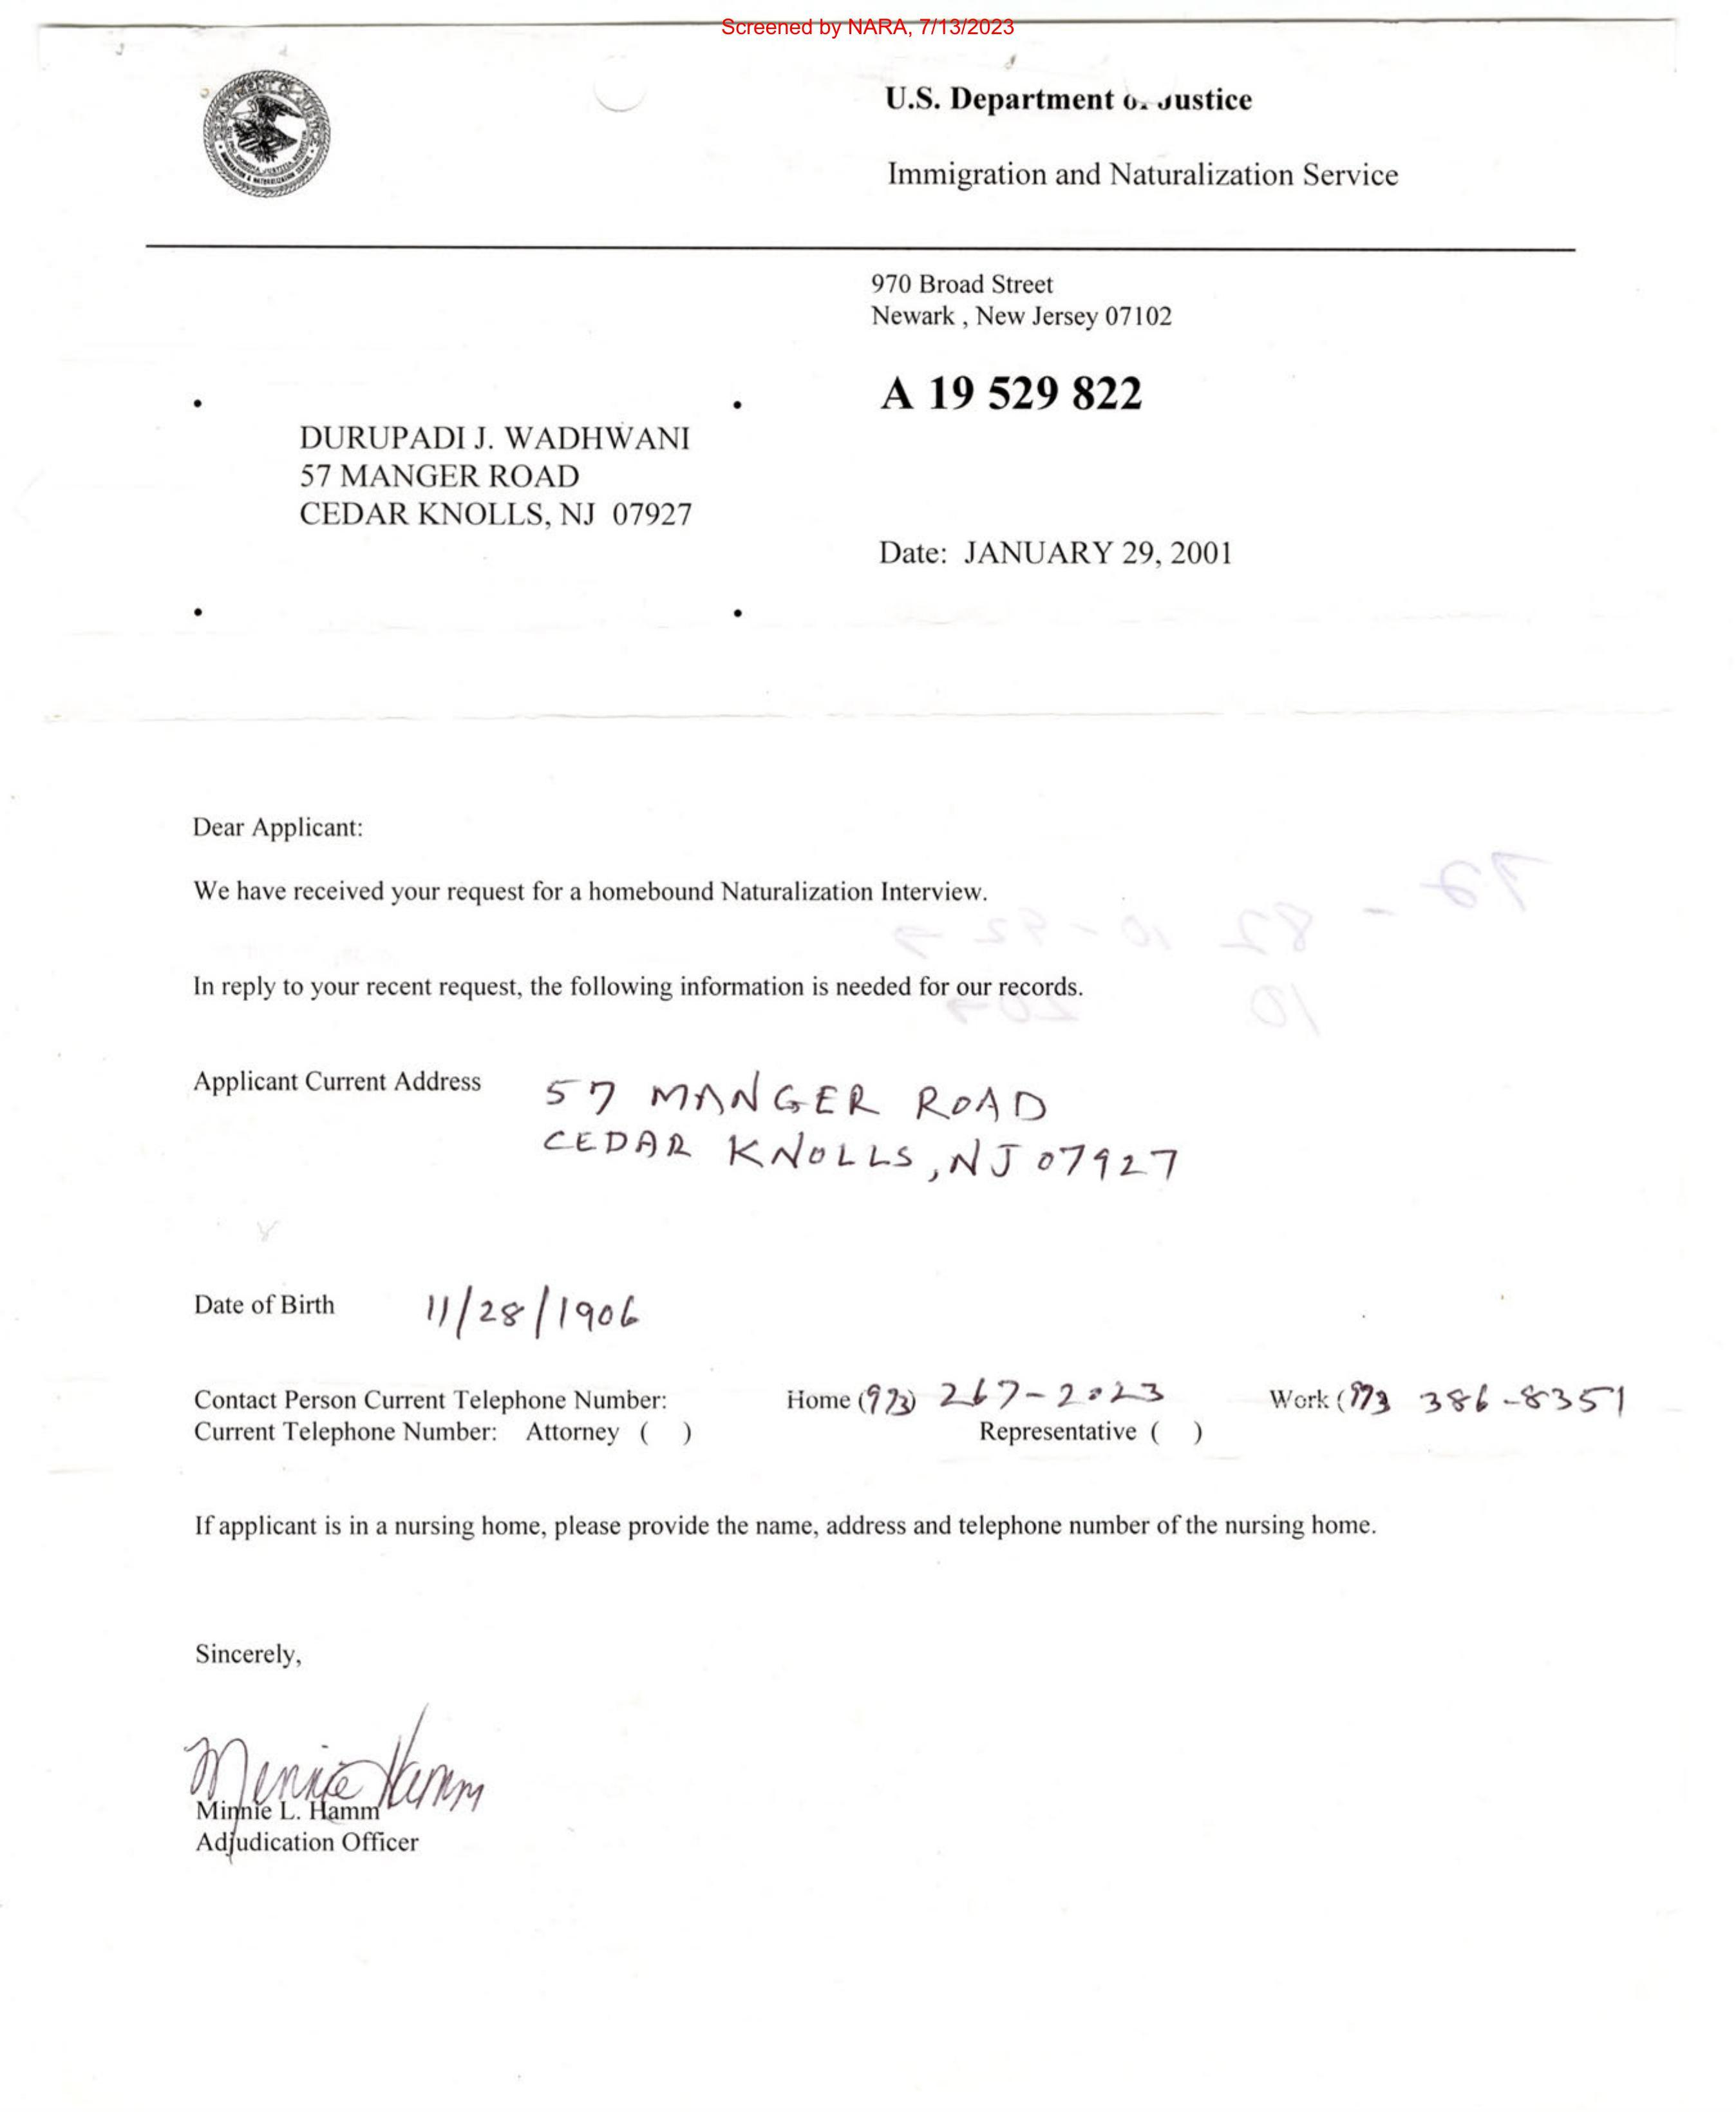 Screened by NARA, 7/13/2023
U.S. Department of Justice
Immigration and Naturalization Service
970 Broad Street
Newark , New Jersey 07102
A 19 529 822
DURUPADI J. WADHWANI
57 MANGER ROAD
CEDAR KNOLLS, NJ 07927
Date: JANUARY 29, 2001
Dear Applicant:
We have received your request for a homebound Naturalization Interview.
In reply to your recent request, the following information is needed for our records.
Applicant Current Address 57 MANGER ROAD
CEDAR KNOLLS, NJ 07927
Date of Birth 11/28/1906
Contact Person Current Telephone Number: Home (973) 267-2023 Work (973 386-8351
Current Telephone Number: Attorney ( ) Representative ( )
If applicant is in a nursing home, please provide the name, address and telephone number of the nursing home.
Sincerely,
Minnie Hamm
Minnie L. Hamm
Adjudication Officer